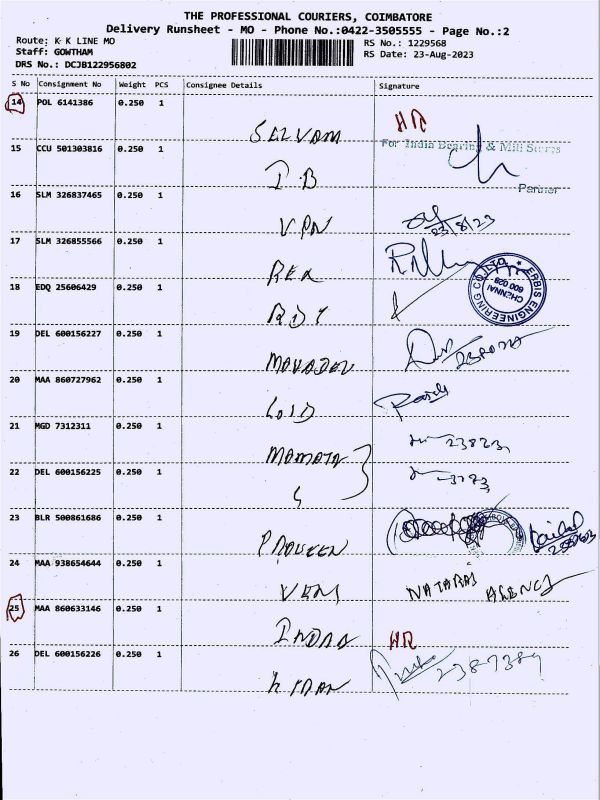 THE PROFESSIONAL COURIERS, COIMBATORE
Delivery Runsheet - MO - Phone No.:0422-3505555 - Page No.:2
Route: K K LINE MO
Staff: GOWTHAM
DRS No.: DCJB122956802
RS No.: 1229568
RS Date: 23-Aug-2023
S No Consignment No Weight PCS Consignee Details Signature
14 POL 6141386 0.250 1
SELVAM HR
15 CCU 501303816 0.250 1 For India Bearing & Mill Stores
I.B Partner
16 SLM 326837465 0.250 1
VPN 23/8/23
17 SLM 326855566 0.250 1
REX
18 EDQ 25606429 0.250 1 ERBIS ENGINEERING CO LTD. CHENNAI 600 028
19 DEL 600156227 0.250 1
20 MAA 860727962 0.250 1
21 MGD 7312311 0.250 1 23823
22 DEL 600156225 0.250 1
23 BLR 500861686 0.250 1
PRAVEEN
24 MAA 938654644 0.250 1
NATARAJ AGENCY
25 MAA 860633146 0.250 1
HR
26 DEL 600156226 0.250 1
KIRAN